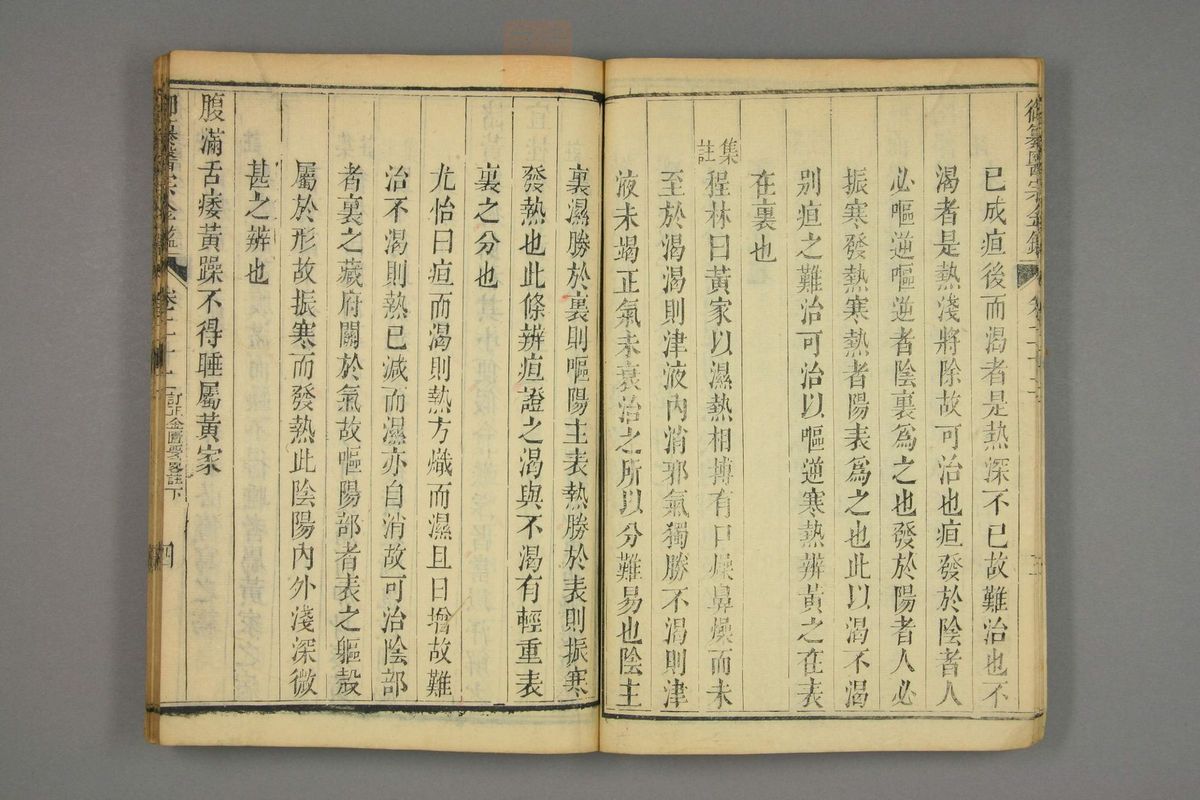 已成疸後而渴者是熱深不已故難治也不
渴者是熱淺將除故可治也疸發於陰者人
必嘔逆嘔逆者陰裏爲之也發於陽者人必
振寒發熱寒熱者陽表爲之也此以渴不渴
别疸之難治可治以嘔逆寒熱辨黃之在表
在裏也
集註
程林曰黃家以濕熱相摶有口燥鼻燥而未
至於渴渴則津液內消邪氣獨勝不渴則津
液未竭正氣未衰治之所以分難易也陰主
裏濕勝於裏則嘔陽主表熱勝於表則振寒
發熱也此條辨疸證之渴與不渴有輕重表
裏之分也
尤怡曰疸而渴則熱方熾而濕且日增故難
治不渴則熱已減而濕亦自消故可治陰部
者裏之藏府關於氣故嘔陽部者表之軀殼
屬於形故振寒而發熱此陰陽內外淺深微
甚之辨也
腹滿舌痿黃躁不得睡屬黃家
御纂醫宗金鑑
卷二十二
訂正金匱要畧註下
四